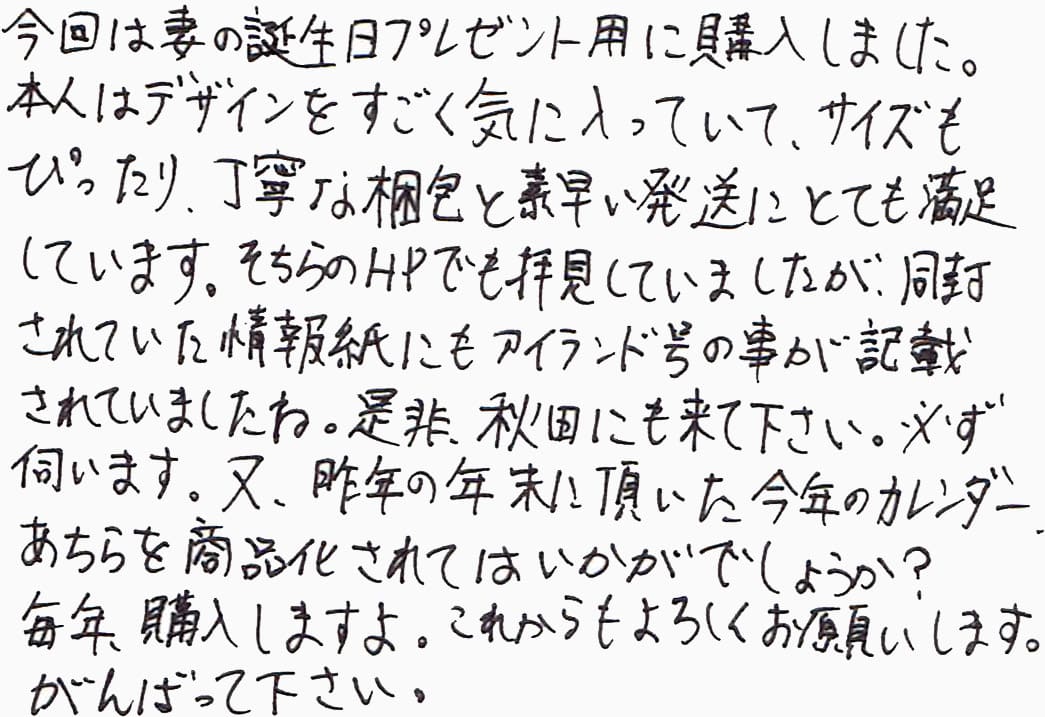 今回は妻の誕生日プレゼント用に購入しました。
本人はデザインをすごく気に入っていて、サイズも
ぴったり、丁寧な梱包と素早い発送にとても満足
しています。そちらのHPでも拝見していましたが、同封
されていた情報紙にもアイランド号の事が記載
されていましたね。是非、秋田にも来て下さい。必ず
伺います。又、昨年の年末に頂いた今年のカレンダー、
あちらを商品化されてはいかがでしょうか?
毎年、購入しますよ。これからもよろしくお願いします。
がんばって下さい。